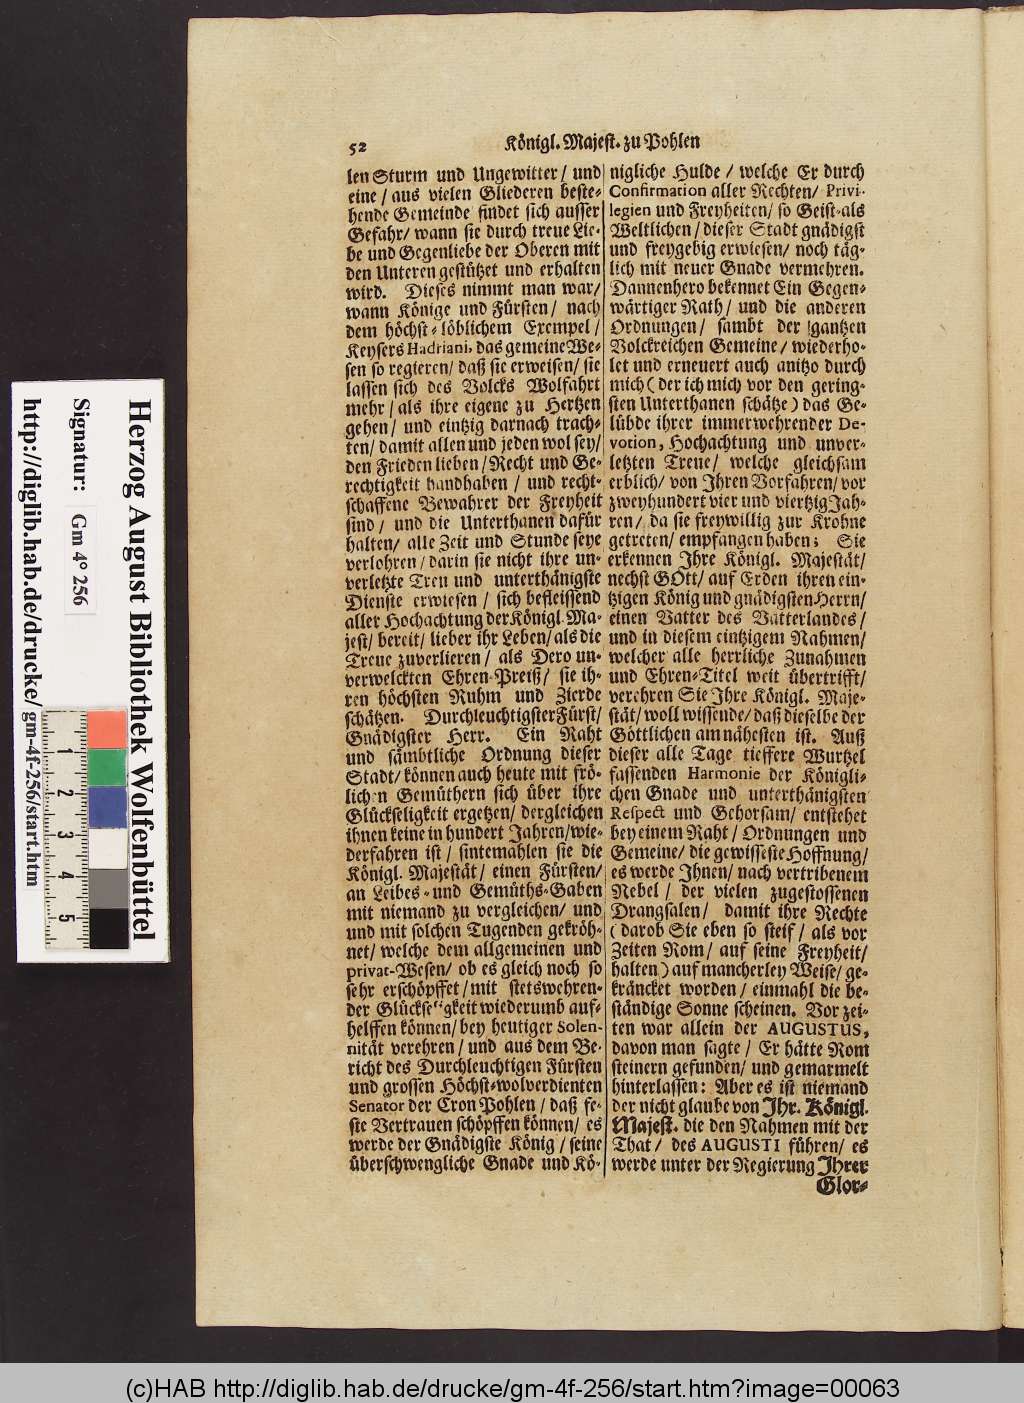 52
Königl. Majest. zu Pohlen
len Sturm und Ungewitter / und
eine / aus vielen Gliederen beste-
hende Gemeinde findet sich ausser
Gefahr / wann sie durch treue Lie-
be und Gegenliebe der Oberen mit
den Unteren gestützet und erhalten
wird. Dieses nimmt man war /
wann Könige und Fürsten / nach
dem höchst-löblichem Exempel /
Keysers Hadriani, das gemeine We-
sen so regieren / daß sie erweisen / sie
lassen sich des Volcks Wolfahrt
mehr / als ihre eigene zu Hertzen
gehen / und eintzig darnach trach-
ten / damit allen und jeden wol sey /
den Frieden lieben / Recht und Ge-
rechtigkeit handhaben / und recht-
schaffene Bewahrer der Freyheit
sind / und die Unterthanen dafür
halten / alle Zeit und Stunde seye
verlohren / darin sie nicht ihre un-
verletzte Treu und unterthänigste
Dienste erwiesen / sich befleissend
aller Hochachtung der Königl. Ma-
jest / bereit / lieber ihr Leben / als die
Treue zuverlieren / als Dero un-
verwelckten Ehren-Preiß / sie ih-
ren höchsten Ruhm und Zierde
schätzen. Durchleuchtigster Fürst /
Gnädigster Herr. Ein Raht
und sämbtliche Ordnung dieser
Stadt / können auch heute mit frö-
lichen Gemüthern sich über ihre
Glückseligkeit ergetzen / dergleichen
ihnen keine in hundert Jahren / wie-
derfahren ist / sintemahlen sie die
Königl. Majestät / einen Fürsten /
an Leibes-und Gemüths-Gaben
mit niemand zu vergleichen / und
und mit solchen Tugenden gekröh-
net / welche dem allgemeinen und
privat-Wesen / ob es gleich noch so
sehr erschöpffet / mit stetswehren-
der Glückseligkeit wiederumb auf-
helffen können / bey heutiger Solen-
nität verehren / und aus dem Be-
richt des Durchleuchtigen Fürsten
und grossen Höchst-wolverdienten
Senator der Cron Pohlen / daß fe-
ste Vertrauen schöpffen können / es
werde der Gnädigste König / seine
überschwengliche Gnade und Kö-
nigliche Hulde / welche Er durch
Confirmation aller Rechten / Privi-
legien und Freyheiten / so Geist-als
Weltlichen / dieser Stadt gnädigst
und freygebig erwiesen / noch täg-
lich mit neuer Gnade vermehren.
Dannenhero bekennet Ein Gegen-
wärtiger Rath / und die anderen
Ordnungen / sambt der gantzen
Volckreichen Gemeine / wiederho-
let und erneuert auch anitzo durch
mich ( der ich mich vor den gering-
sten Unterthanen schätze ) das Ge-
lübde ihrer immerwehrender De-
votion, Hochachtung und unver-
letzten Treue / welche gleichsam
erblich / von Ihren Vorfahren / vor
zweyhundert vier und viertzig Jah-
ren / da sie freywillig zur Krohne
getreten / empfangen haben; Sie
erkennen Ihre Königl. Majestät /
nechst GOtt / auf Erden ihren ein-
tzigen König und gnädigsten Herrn /
einen Vatter des Vatterlandes /
und in diesem eintzigem Nahmen /
welcher alle herrliche Zunahmen
und Ehren-Titel weit übertrifft /
verehren Sie Ihre Königl. Maje-
stät / woll wissende / daß dieselbe der
Göttlichen am nähesten ist. Auß
dieser alle Tage tieffere Wurtzel
fassenden Harmonie der Königli-
chen Gnade und unterthänigsten
Respect und Gehorsam / entstehet
bey einem Raht / Ordnungen und
Gemeine / die gewisseste Hoffnung /
es werde Ihnen / nach vertribenem
Nebel / der vielen zugestossenen
Drangsalen / damit ihre Rechte
( darob Sie eben so steif / als vor
Zeiten Rom / auf seine Freyheit /
halten ) auf mancherley Weise / ge-
kräncket worden / einmahl die be-
ständige Sonne scheinen. Vor zei-
ten war allein der AUGUSTUS,
davon man sagte / Er hätte Rom
steinern gefunden / und gemarmelt
hinterlassen: Aber es ist niemand
der nicht glaube von Ihr. Königl.
Majest. die den Nahmen mit der
That / des AUGUSTI führen / es
werde unter der Regierung Ihrer
Glor-
Herzog August Bibliothek Wolfenbüttel
Signatur: Gm 4° 256
http://diglib.hab.de/drucke/gm-4f-256/start.htm
1
2
3
4
5
(c)HAB http://diglib.hab.de/drucke/gm-4f-256/start.htm?image=00063